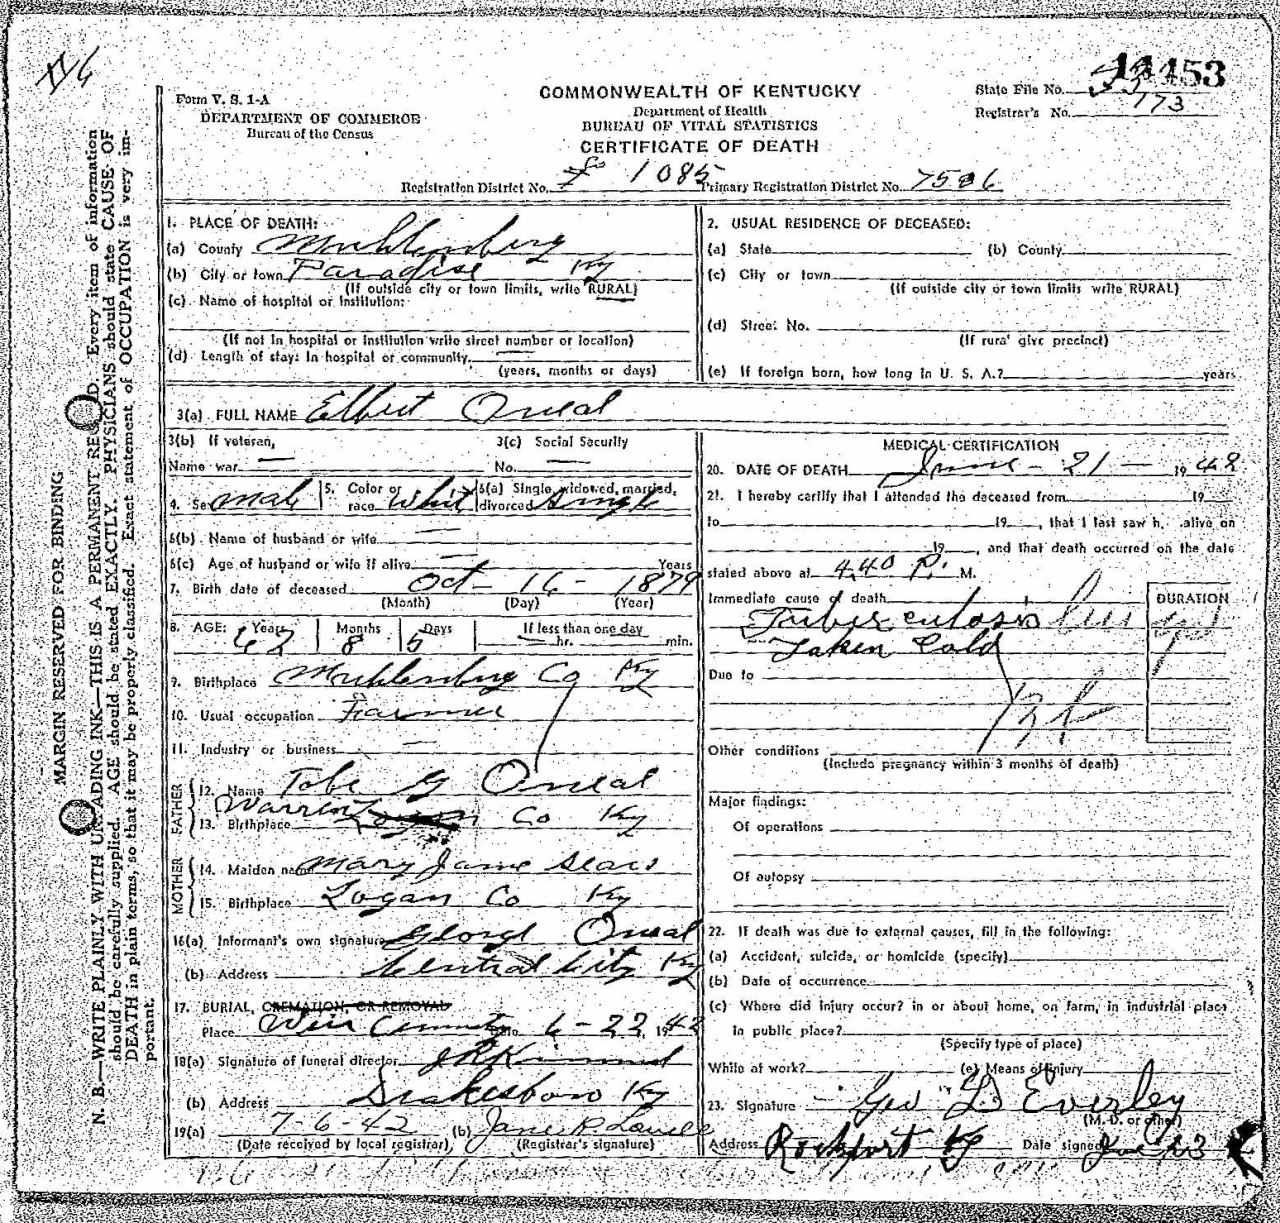 COMMONWEALTH OF KENTUCKY
Department of Health
BUREAU OF VITAL STATISTICS
CERTIFICATE OF DEATH
Form V. S. 1-A
DEPARTMENT OF COMMERCE
Bureau of the Census
State File No. 14453
Registrar's No. 173
Registration District No. 1085 Primary Registration District No. 7586
MARGIN RESERVED FOR BINDING
N. B.—WRITE PLAINLY WITH UNFADING INK—THIS IS A PERMANENT RECORD. Every item of information
should be carefully supplied. AGE should be stated EXACTLY. PHYSICIANS should state CAUSE OF
DEATH in plain terms, so that it may be properly classified. Exact statement of OCCUPATION is very im-
portant.
1. PLACE OF DEATH:
(a) County Muhlenberg
(b) City or town Paradise Ky
(If outside city or town limits, write RURAL)
(c) Name of hospital or institution:
(If not in hospital or institution write street number or location)
(d) Length of stay: In hospital or community —
(years, months or days)
2. USUAL RESIDENCE OF DECEASED:
(a) State (b) County
(c) City or town
(If outside city or town limits write RURAL)
(d) Street No.
(If rural give precinct)
(e) If foreign born, how long in U. S. A.? years
3(a) FULL NAME Elbert Oneal
3(b) If veteran,
Name war —
3(c) Social Security
No. —
4. Sex Male 5. Color or race White 6(a) Single, widowed, married, divorced Single
6(b) Name of husband or wife —
6(c) Age of husband or wife if alive — Years
7. Birth date of deceased Oct - 16 - 1879
(Month) (Day) (Year)
8. AGE: Years 62 Months 8 Days 5 If less than one day — hr. min.
9. Birthplace Muhlenburg Co Ky
10. Usual occupation Farmer
11. Industry or business —
FATHER
12. Name Tobe G Oneal
13. Birthplace Warren Logan Co Ky
MOTHER
14. Maiden name Mary Jane Sears
15. Birthplace Logan Co Ky
16(a) Informant's own signature George Oneal
(b) Address Central City Ky
17. BURIAL, CREMATION, OR REMOVAL
Place Weir Cemetery Date 6-22, 1942
18(a) Signature of funeral director
(b) Address Drakesboro Ky
19(a) 7-6-42 (b)
(Date received by local registrar) (Registrar's signature)
MEDICAL CERTIFICATION
20. DATE OF DEATH June - 21 - 1942
21. I hereby certify that I attended the deceased from 19
to 19 , that I last saw h alive on
19 , and that death occurred on the date
stated above at 4.40 P. M.
Immediate cause of death DURATION
Tuberculosis
Taken Cold
Due to
Other conditions
(Include pregnancy within 3 months of death)
Major findings:
Of operations
Of autopsy
22. If death was due to external causes, fill in the following:
(a) Accident, suicide, or homicide (specify)
(b) Date of occurrence
(c) Where did injury occur? in or about home, on farm, in industrial place
in public place?
(Specify type of place)
While at work? (e) Means of injury
23. Signature Geo D Everley
(M. D. or other)
Address Rockport Ky Date signed June 23